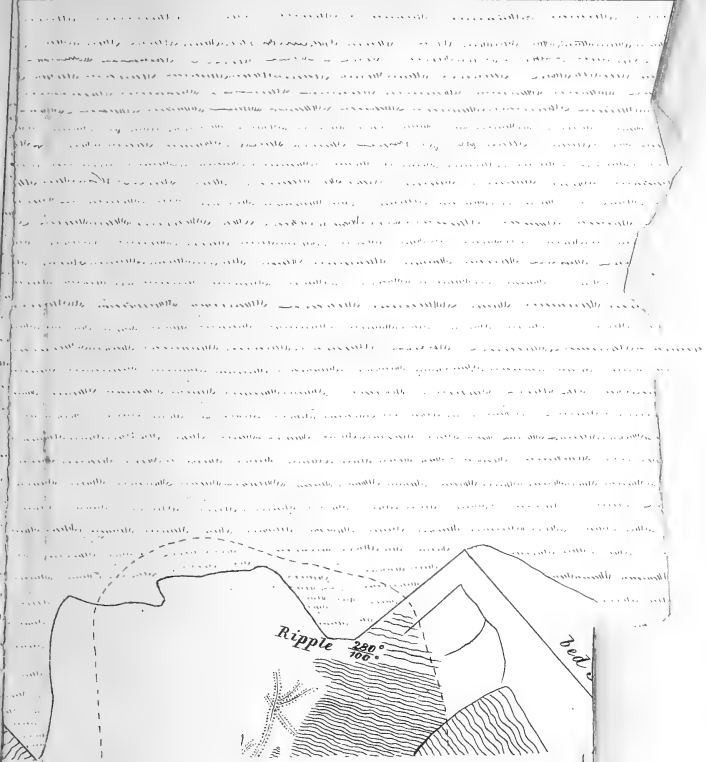 Ripple 280°
100°
bed